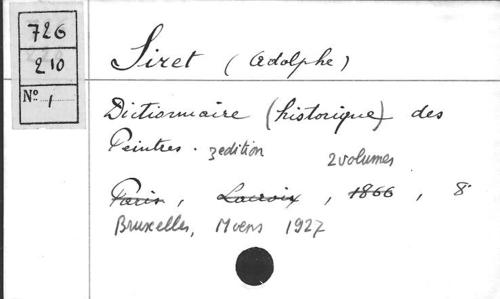 726
210
Nº 1
Siret (Adolphe)
Dictionnaire (historique) des
Peintres. 3edition 2 volumes
Paris, Lacroix, 1866, 8°
Bruxelles, Moens 1927